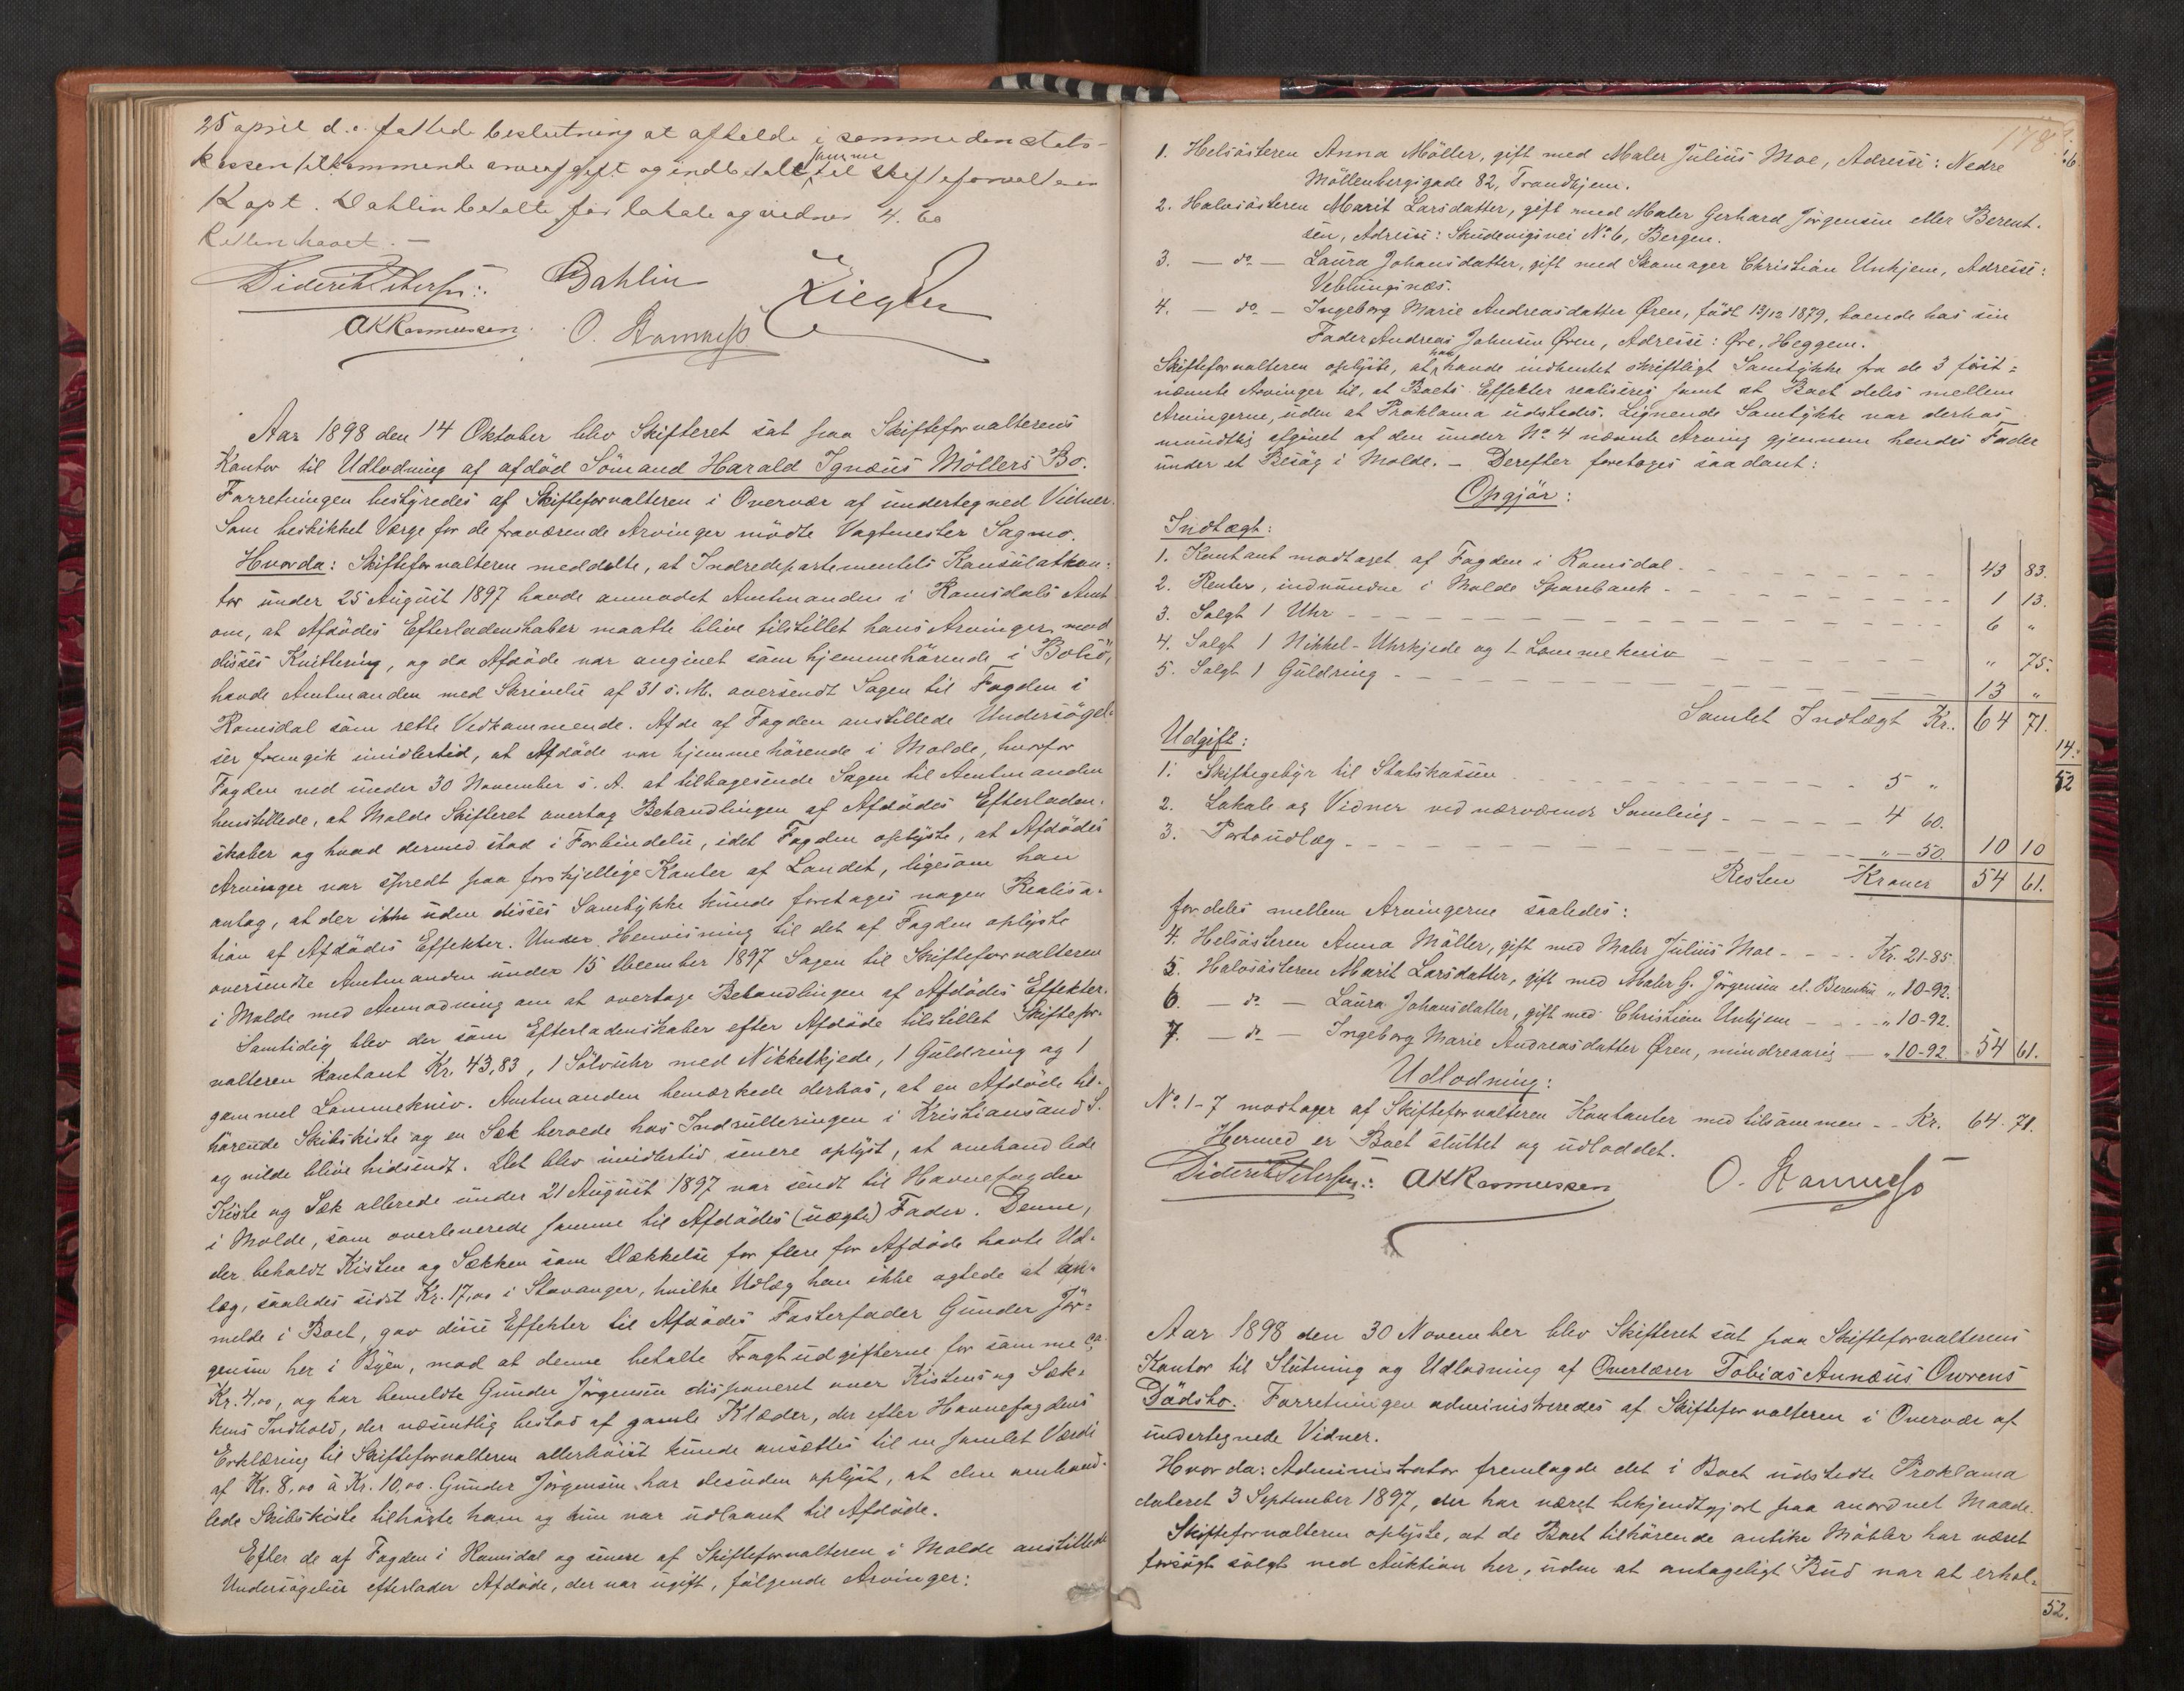 25 april d.a. fattede beslutning at afholde i somme den stats-
kassen tilkommende arveafgift og indbetale samme til skifteforvalteren
Kapt. Dahlin betalte for lokale og vidner 4.60
Retten hævet. —
Diderik Petersen: Dahlin Ziegler
AKRasmussen. O. Stamnesø
Aar 1898 den 14 Oktober blev Skifteret sat paa Skifteforvalterens
Kontor til Udlodning af afdød Sömand Harald Ignæus Möllers Bo.
Forretningen bestyredes af Skifteforvalteren i Overvær af undertegned Vidner.
Som beskikket Værge for de fraværende Arvinger mödte Vagtmester Sagmo.
Hvorda: Skifteforvalteren meddelte, at Indredepartementets Konsulatkon-
tor under 25 August 1897 havde anmodet Amtmanden i Romsdals Amt
om, at Afdödes Efterladenskaber maatte blive tilstillet hans Arvinger mod
disses Kvittering, og da Afdöde var angivet som hjemmehörende i Bolsö,
havde Amtmanden med Skrivelse af 31 s. M. oversendt Sagen til Fogden i
Romsdal som rette Vedkommende. Af de af Fogden anstillede Undersögel-
ser fremgik imidlertid, at Afdöde var hjemmehörende i Molde, hvorfor
Fogden ved under 30 November s. A. at tilbagesende Sagen til Amtmanden
henstillede, at Molde Skifteret overtog Behandlingen af Afdödes Efterladen-
skaber og hvad dermed stod i Forbindelse, idet Fogden oplyste, at Afdödes
Arvinger var spredt paa forskjellige Kanter af Landet, ligesom han
antog, at der ikke uden disses Samtykke kunde foretages nogen Realisa-
tion af Afdödes Effekter. Under Henvisning til det af Fogden oplyste
oversendte Amtmanden under 15 December 1897 Sagen til Skifteforvalteren
i Molde med Anmodning om at overtage Behandlingen af Afdödes Effekter.
Samtidig blev der som Efterladenskaber efter Afdöde tilstillet Skiftefor-
valteren kontant Kr. 43,83, 1 Sölvuhr med Nikkelkjede, 1 Guldring og 1
gammel Lommekniv. Amtmanden bemærkede derhos, at en Afdöde til-
hörende Skibskiste og en Sæk beroede hos Indrulleringen i Kristiansand S.
og vilde blive hidsendt. Det blev imidlertid senere oplyst, at omhandlede
Kiste og Sæk allerede under 21 August 1897 var sendt til Havnefogden
i Molde, som overleverede samme til Afdödes (uægte) Fader. Denne,
der beholdt Kisten og Sækken som Dækkelse for flere for Afdöde havte Ud-
læg, saaledes sidst Kr. 17,00 i Stavanger, hvilke Udlæg han ikke agtede at an-
melde i Boet, gav disse Effekter til Afdödes Fosterfader Gunder Jör-
gensen her i Byen, mod at denne betalte Fragtudgifterne for samme ca
Kr. 4,00, og har bemeldte Gunder Jörgensen disponeret over Kistens og Sæk-
kens Indhold, der væsentlig bestod af gamle Klæder, der efter Havnefogdens
Erklæring til Skifteforvalteren allerhöist kunde ansættes til en samlet Værdi
af Kr. 8,00 à Kr. 10,00. Gunder Jörgensen har desuden oplyst, at den omhand-
lede Skibskiste tilhörte ham og kun var udlaant til Afdöde.
Efter de af Fogden i Romsdal og senere af Skifteforvalteren i Molde anstillede
Undersögelser efterlader Afdöde, der var ugift, fölgende Arvinger:
178
1. Helsösteren Anna Möller, gift med Maler Julius Moe, Adresse: Nedre
Möllenbergsgade 82, Trondhjem.
2. Halvsösteren Marit Larsdatter, gift med Maler Gerhard Jörgensen eller Berent-
sen, Adresse: Skudevigsvei No 6, Bergen.
3. — do — Laura Johansdatter, gift med Skomager Christian Unhjem, Adresse:
Veblungsnæs.
4. — do — Ingeborg Marie Andreasdatter Øren, födt 13/12 1879, boende hos sin
Fader Andreas Johnsen Øren, Adresse: Øre, Heggem.
Skifteforvalteren oplyste, at han havde indhentet skriftligt Samtykke fra de 3 först-
nævnte Arvinger til, at Boets Effekter realiseres samt at Boet deles mellem
Arvingerne, uden at Proklama udstedes. Lignende Samtykke var derhos
mundtlig afgivet af den under No 4 nævnte Arving gjennem hendes Fader
under et Besög i Molde. — Derefter foretoges saadant:
Opgjör:
Indtægt:
1. Kontant modtaget af Fogden i Romsdal - - - 43 83.
2. Renter, indvundne i Molde Sparebank - - - 1 13.
3. Solgt 1 Uhr - - - 6 "
4. Solgt 1 Nikkel-Uhrkjede og 1 Lommekniv - - - " 75.
5. Solgt 1 Guldring - - - 13 "
Samlet Indtægt Kr. 64 71.
Udgift:
1. Skiftegebyr til Statskassen - - - 5 "
2. Lokale og Vidner ved nærværende Samling - - - 4 60.
3. Portoudlæg - - - " - 50 10 10
Resten Kroner 54 61.
fordeles mellem Arvingerne saaledes:
4. Helsösteren Anna Möller, gift med Maler Julius Moe - - - Kr. 21-85
5. Halvsösteren Marit Larsdatter, gift med Maler G. Jörgensen el. Berentsen " 10-92.
6. — do — Laura Johansdatter, gift med Christian Unhjem - - - " 10-92.
7. — do — Ingeborg Marie Andreasdatter Øren, mindreaarig — " 10-92 54 61.
Udlodning:
No 1-7 modtager af Skifteforvalteren Kontanter med tilsammen - - Kr. 64.71.
Hermed er Boet sluttet og udloddet.
Diderik Petersen: AKRasmussen O. Stamnesø
Aar 1898 den 30 November blev Skifteret sat paa Skifteforvalterens
Kontor til Slutning og Udlodning af Overlærer Tobias Annæus Owrens
Dödsbo. Forretningen administreredes af Skifteforvalteren i Overvær af
undertegnede Vidner.
Hvorda: Administrator fremlagde det i Boet udstedte Proklama
dateret 3 September 1897, der har været bekjendtgjort paa anordnet Maade.
Skifteforvalteren oplyste, at de Boet tilhörende antike Möbler har været
forsögt solgt ved Auktion her, uden at antageligt Bud var at erhol-
14.
52
52.